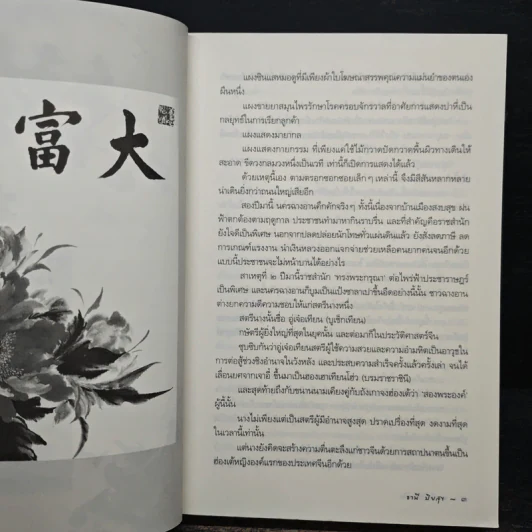 大富
แผงซินแสหมอดูที่มีเพียงผ้าใบโฆษณาสรรพคุณความแม่นยำของตนเอง
ผืนหนึ่ง
แผงขายยาสมุนไพรรักษาโรคครอบจักรวาลที่อาศัยการแสดงปาหี่เป็น
กลยุทธ์ในการเรียกลูกค้า
แผงแสดงมายากล
แผงแสดงกายกรรม ที่เพียงแค่ใช้ไม้กวาดปัดกวาดพื้นผิวทางเดินให้
สะอาด ขีดวงกลมวงหนึ่งเป็นเวที เท่านี้ก็เปิดการแสดงได้แล้ว
ด้วยเหตุนี้เอง ตามตรอกซอกซอยเล็กๆ เหล่านี้ จึงมีสีสันหลากหลาย
น่าเดินยิ่งกว่าถนนใหญ่เสียอีก
สองปีมานี้ นครฉางอานคึกคักจริงๆ ทั้งนี้เนื่องจากบ้านเมืองสงบสุข ฝน
ฟ้าตกต้องตามฤดูกาล ประชาชนทำมาหากินราบรื่น และที่สำคัญคือราชสำนัก
ยังใจดีเป็นพิเศษ นอกจากปลดปล่อยนักโทษทั่วแผ่นดินแล้ว ยังสั่งลดภาษี ลด
การเกณฑ์แรงงาน นำเงินหลวงออกแจกจ่ายช่วยเหลือคนยากคนจนอีกด้วย
แบบนี้ประชาชนจะไม่หน้าบานได้อย่างไร
สาเหตุที่ ๒ ปีมานี้ราชสำนัก 'ทรงพระกรุณา' ต่อไพร่ฟ้าประชาราษฎร์
เป็นพิเศษ และนครฉางอานก็บูมเป็นแป้งซาลาเปาขึ้นอืดอย่างนี้นั้น ชาวฉางอาน
ต่างยกความดีความชอบให้แก่สตรีนางหนึ่ง
สตรีนางนั้นชื่อ อู่เจ๋อเทียน (บูเช็กเทียน)
กษัตรีผู้ยิ่งใหญ่ที่สุดในยุคนั้น และต่อมาก็ในประวัติศาสตร์จีน
ซุบซิบกันว่าอู่เจ๋อเทียนสตรีผู้ใช้ความสวยและความอำมหิตเป็นอาวุธใน
การต่อสู้ช่วงชิงอำนาจในวังหลัง และประสบความสำเร็จครั้งแล้วครั้งเล่า จนได้
เลื่อนยศจากเจาอี๋ ขึ้นมาเป็นฮองเฮาเทียนโฮ่ว (บรมราชาชินี)
และสุดท้ายถึงกับขนานนามเคียงคู่กับถังเกาจงฮ่องเต้ว่า 'สองพระองค์'
ผู้นี้นั้น
นางไม่เพียงแต่เป็นสตรีผู้มีอำนาจสูงสุด ปราดเปรื่องที่สุด งดงามที่สุด
ในเวลานี้เท่านั้น
แต่นางยังคิดจะสร้างความตื่นตะลึงแก่ชาวจีนด้วยการสถาปนาตนขึ้นเป็น
ฮ่องเต้หญิงองค์แรกของประเทศจีนอีกด้วย